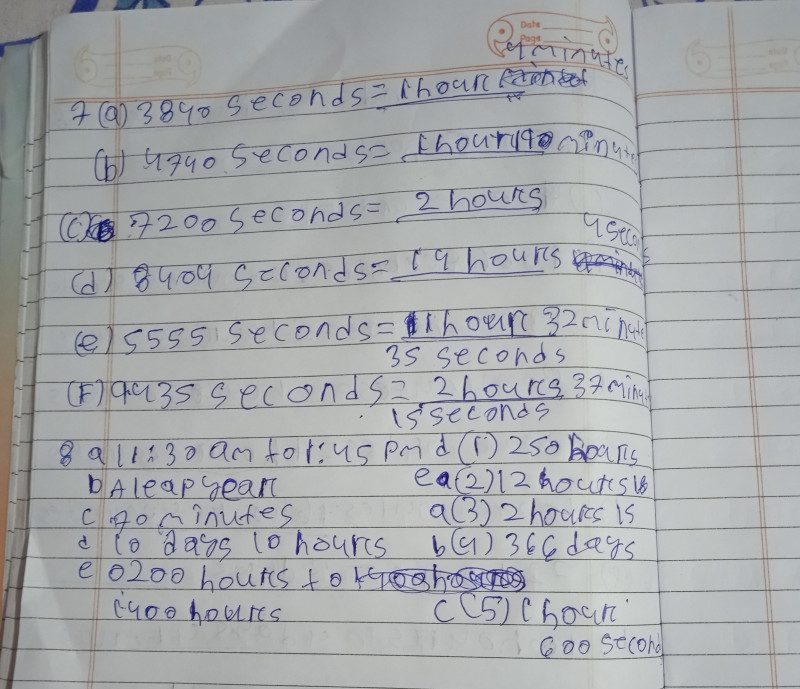 Date
Page
4 minutes
7 (a) 3840 seconds = 1 hour
(b) 4740 seconds = 1 hour 190 minute
(c) 7200 seconds = 2 hours
4 seconds
(d) 8404 seconds = 14 hours
(e) 5555 seconds = 1 hour 32 minute
35 seconds
(F) 9435 seconds = 2 hours 37 minu
15 seconds
8 a 11:30 am to 1:45 pm d (1) 250 hours
b A leap year ea (2) 12 hours
c 70 minutes a (3) 2 hours 15
d 10 days 10 hours b (4) 366 days
e 0200 hours to
1400 hours c (5) 1 hour
600 second